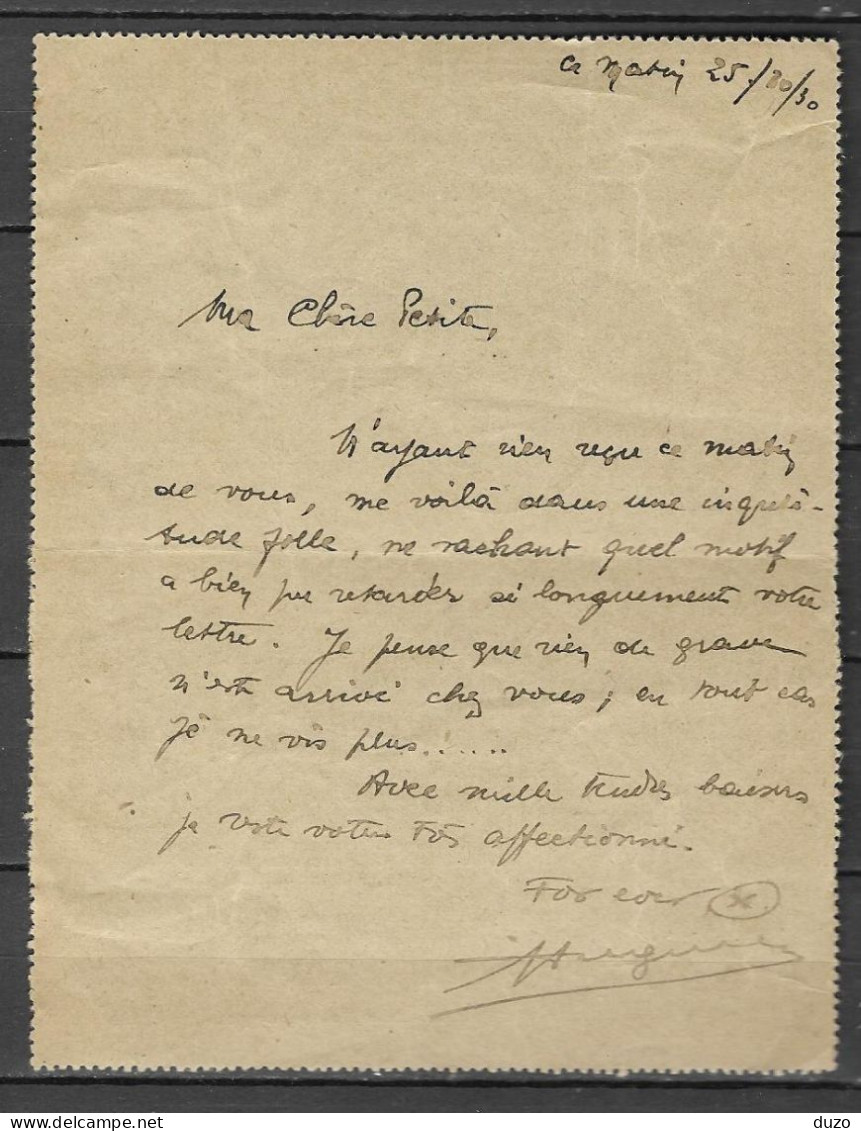 ce matin 25/10/30
Ma Chère Petite,
N'ayant rien reçu ce matin
de vous, me voilà dans une inquié-
tude folle, ne sachant quel motif
a bien pu retarder si longuement votre
lettre. Je pense que rien de grave
n'est arrivé chez vous; en tout cas
je ne vis plus......
Avec mille tendres baisers
je reste votre très affectionné.
For ever
duzo